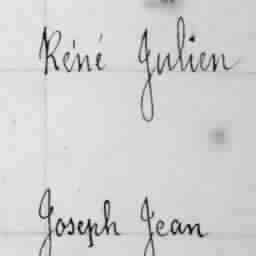 Réné Julien
Joseph Jean